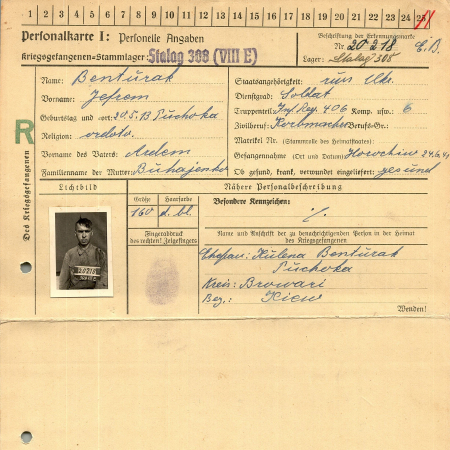 1 2 3 4 5 6 7 8 9 10 11 12 13 14 15 16 17 18 19 20 21 22 23 24 25
Personalkarte I: Personelle Angaben
Kriegsgefangenen-Stammlager: Stalag 308 (VIII E)
Beschriftung der Erkennungsmarke
Nr. 20218
Lager: Stalag 308
E.B.
Des Kriegsgefangenen
R
Name: Benturak
Vorname: Jefrem
Geburtstag und -ort: 30.5.13 Puchoka
Religion: ordoto.
Vorname des Vaters: Ardem
Familienname der Mutter: Buhajenko
Staatsangehörigkeit: rus Ukr.
Dienstgrad: Soldat
Truppenteil: Inf. Reg. 406 Komp. usw.: 6
Zivilberuf: Korbmacher Berufs-Gr.
Matrikel Nr. (Stammrolle des Heimatstaates)
Gefangennahme (Ort und Datum) Horochiw 24.6.41
Ob gesund, krank, verwundet eingeliefert: gesund
Lichtbild
20218
Nähere Personalbeschreibung
Größe Haarfarbe
160 d. bl.
Besondere Kennzeichen:
Fingerabdruck
des rechten! Zeigefingers
Name und Anschrift der zu benachrichtigenden Person in der Heimat
des Kriegsgefangenen
Ehefrau: Hulena Benturak
Puchoka
Kreis: Browari
Bez.: Kiew
Wenden!